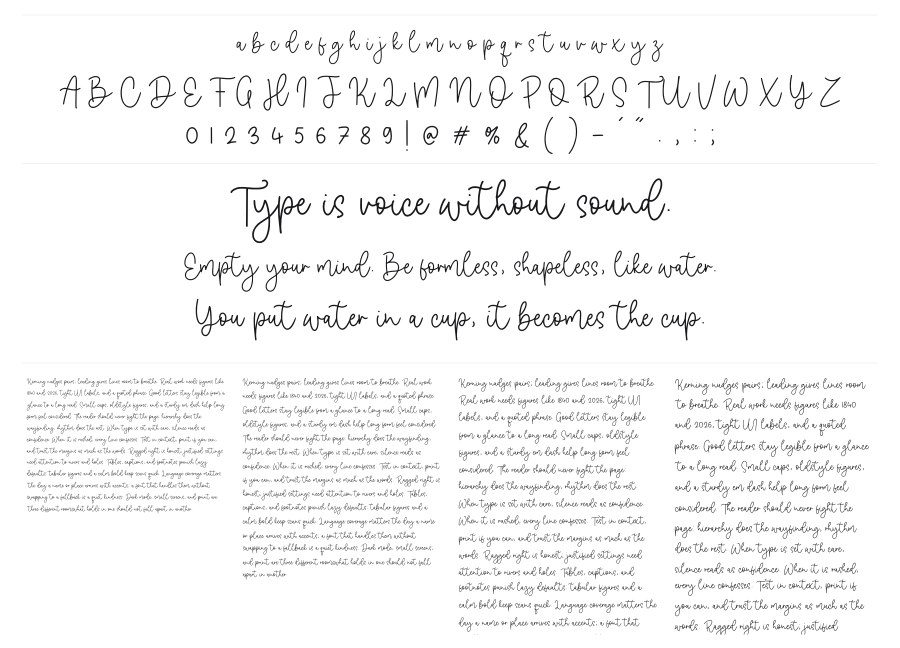 a b c d e f g h i j k l m n o p q r s t u v w x y z
A B C D E F G H I J K L M N O P Q R S T U V W X Y Z
0 1 2 3 4 5 6 7 8 9 ! @ # % & ( ) - ´ ˝ . , : ;
Type is voice without sound.
Empty your mind. Be formless, shapeless, like water.
You put water in a cup, it becomes the cup.
Kerning nudges pairs, leading gives lines room to breathe. Real work needs figures like
1840 and 2026, tight UI labels, and a quoted phrase. Good letters stay legible from a
glance to a long read. Small caps, oldstyle figures, and a sturdy en dash help long
form feel considered. The reader should never fight the page: hierarchy does the
wayfinding, rhythm does the rest. When type is set with care, silence reads as
confidence. When it is rushed, every line confesses. Test in context, print if you can,
and trust the margins as much as the words. Ragged right is honest, justified settings
need attention to rivers and holes. Tables, captions, and footnotes punish lazy
defaults: tabular figures and a calm bold keep scans quick. Language coverage matters
the day a name or place arrives with accents; a font that handles them without
swapping to a fallback is a quiet kindness. Dark mode, small screens, and print are
three different rooms: what holds in one should not fall apart in another.
Kerning nudges pairs, leading gives lines room to breathe. Real work
needs figures like 1840 and 2026, tight UI labels, and a quoted phrase.
Good letters stay legible from a glance to a long read. Small caps,
oldstyle figures, and a sturdy en dash help long form feel considered.
The reader should never fight the page: hierarchy does the wayfinding,
rhythm does the rest. When type is set with care, silence reads as
confidence. When it is rushed, every line confesses. Test in context, print
if you can, and trust the margins as much as the words. Ragged right is
honest, justified settings need attention to rivers and holes. Tables,
captions, and footnotes punish lazy defaults: tabular figures and a
calm bold keep scans quick. Language coverage matters the day a name
or place arrives with accents; a font that handles them without
swapping to a fallback is a quiet kindness. Dark mode, small screens,
and print are three different rooms: what holds in one should not fall
apart in another.
Kerning nudges pairs, leading gives lines room to breathe.
Real work needs figures like 1840 and 2026, tight UI
labels, and a quoted phrase. Good letters stay legible
from a glance to a long read. Small caps, oldstyle
figures, and a sturdy en dash help long form feel
considered. The reader should never fight the page:
hierarchy does the wayfinding, rhythm does the rest.
When type is set with care, silence reads as confidence.
When it is rushed, every line confesses. Test in context,
print if you can, and trust the margins as much as the
words. Ragged right is honest, justified settings need
attention to rivers and holes. Tables, captions, and
footnotes punish lazy defaults: tabular figures and a
calm bold keep scans quick. Language coverage matters the
day a name or place arrives with accents; a font that
Kerning nudges pairs, leading gives lines room
to breathe. Real work needs figures like 1840
and 2026, tight UI labels, and a quoted
phrase. Good letters stay legible from a glance
to a long read. Small caps, oldstyle figures,
and a sturdy en dash help long form feel
considered. The reader should never fight the
page: hierarchy does the wayfinding, rhythm
does the rest. When type is set with care,
silence reads as confidence. When it is rushed,
every line confesses. Test in context, print if
you can, and trust the margins as much as the
words. Ragged right is honest, justified